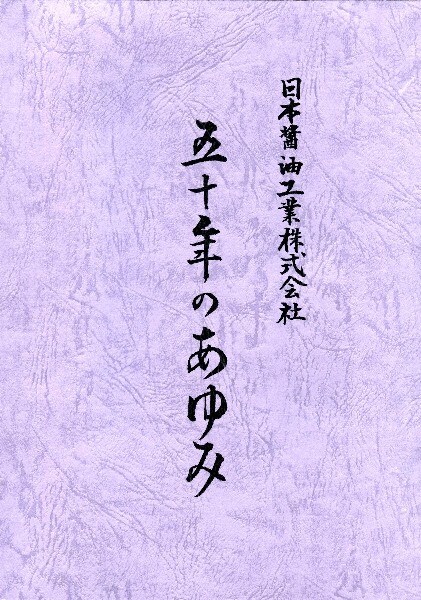 日本醤油工業株式会社
五十年のあゆみ